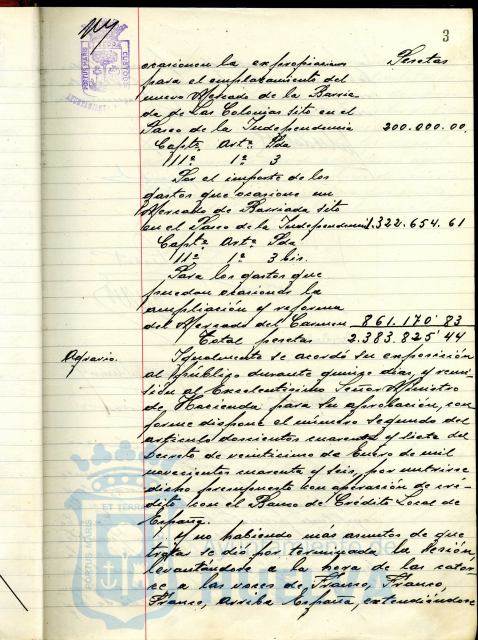 3
ocasionen la expropiacion Pesetas
para el emplazamiento del
nuevo Mercado de la Barria
da de Las Colonias sito en el
Paseo de la Independencia 200.000.00.
Captº Artº Pda
111º 1º 3
Por el importe de los
gastos que ocasione un
Mercado de Barriada sito
en el Paseo de la Independencia 1.322.654.61
Captº Artº Pda
11º 1º 3 bis.
Para los gastos que
puedan ocasionar la
ampliación y reforma
del Mercado del Carmen 861.170'83
Total pesetas 2.383.825'44
Agravio. Igualmente se acordó su exposición
al público durante quince dias, y remi-
sión al Excelentísimo Señor Ministro
de Hacienda para su aprobación, con
forme dispone el número segundo del
articulo doscientos cuarenta y siete del
Decreto de veinticinco de Enero de mil
novecientos cuarenta y seis, por nutrirse
dicho presupuesto con operación de cré-
dito con el Banco de Crédito Local de
España.
Y no habiendo más asuntos de que
tratar se dió por terminada la sesión
levantándose a la hora de las cator-
ce a las voces de Franco, Franco,
Franco, Arriba España, extendiéndose
PORTUS MARIS ET TERRAE CUSTODIA
Ayuntamiento de
HUELVA